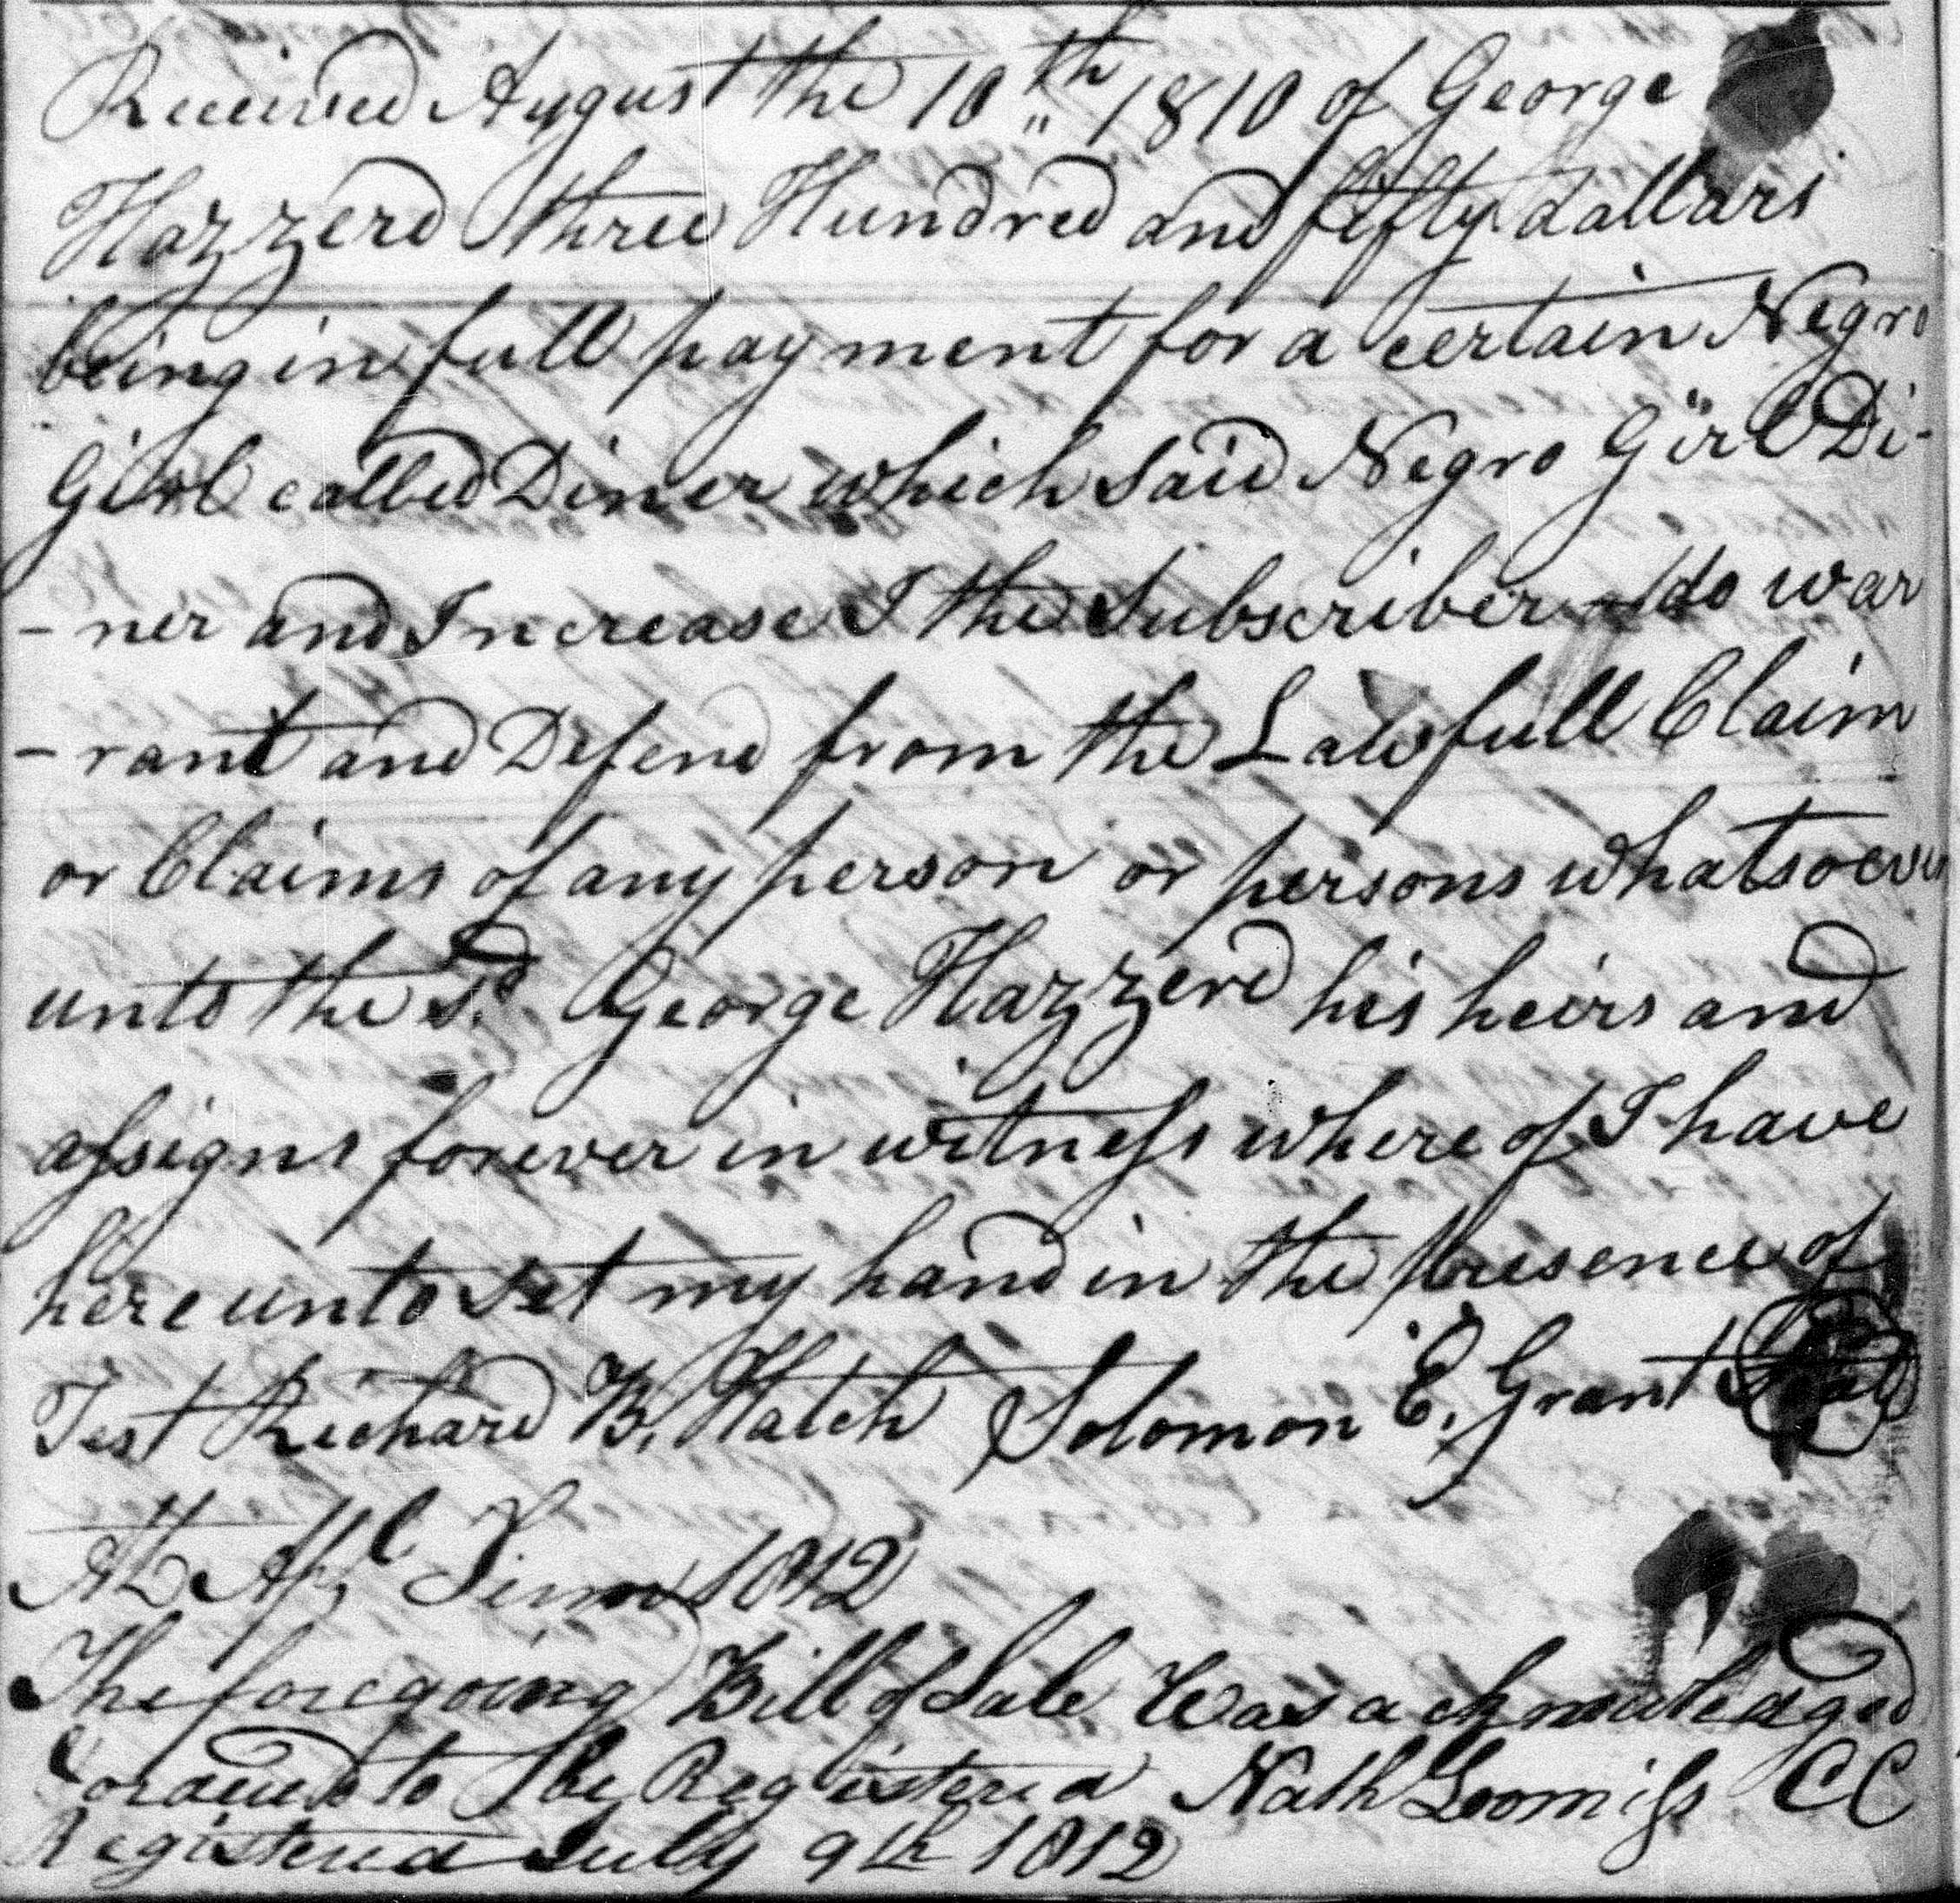 Received August the 10th 1810 of George
Hazzerd three Hundred and fifty dallars
being in full payment for a certain Negro
Girl called Diner which said Negro Girl Di-
-ner and Increase I the Subscriber do war
-rant and Defend from the Lawfull Claim
or Claims of any person or persons whatsoever
unto the Sd. George Hazzerd his heirs and
assigns forever in witness where of I have
here unto set my hand in the presence of
Test Richard B. Hatch Solomon E. Grant Seal
At Apl Term 1812
The foregoing Bill of Sale Was acknowledged
& ordered to be Registered Nath Loomiss CC
Registered July 9th 1812